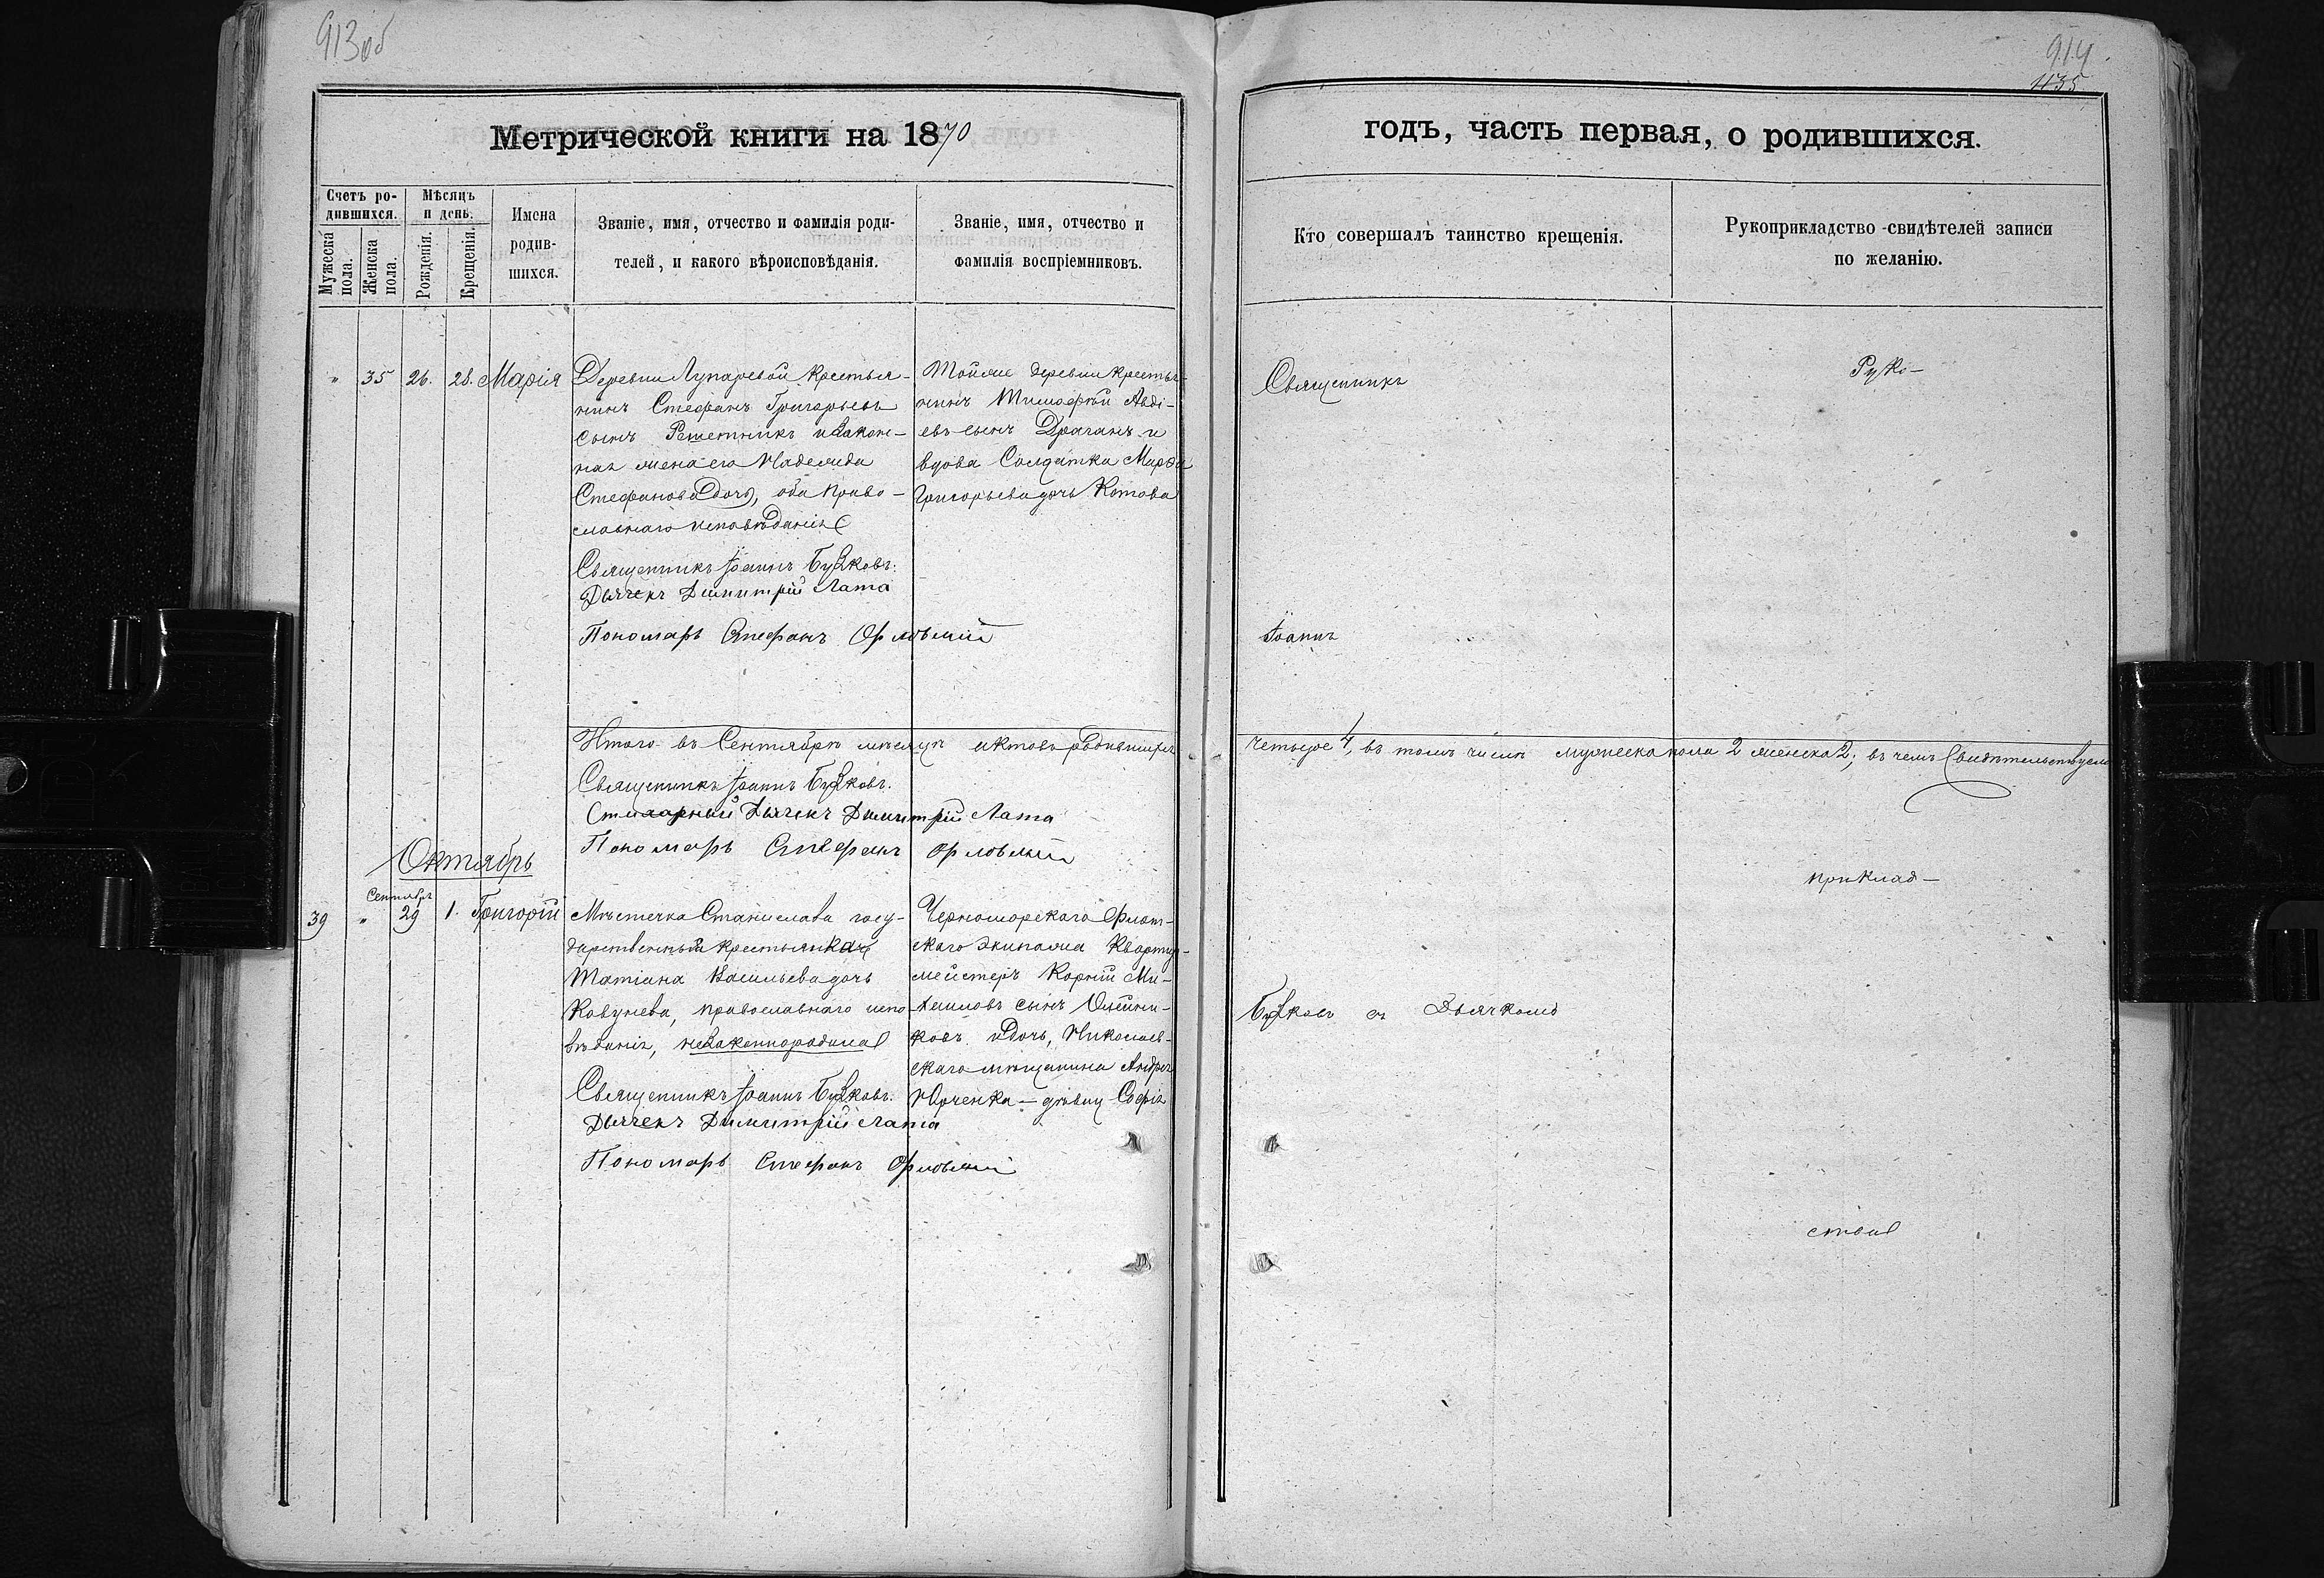 913об
914
1135
Метрической книги на 1870
годъ, часть первая, о родившихся.
Счетъ ро-
дившихся.
Мѣсяцъ
и день.
Мужеска
пола.
Женска
пола.
Рожденія.
Крещенія.
Имена
родив-
шихся.
Званіе, имя, отчество и фамилія роди-
телей, и какого вѣроисповѣданія.
Званіе, имя, отчество и
фамилія воспріемниковъ.
Кто совершалъ таинство крещенія.
Рукоприкладство свидѣтелей записи
по желанію.
" 35 26. 28. Марія
Деревни Лупаревой крестья-
нинъ Стефанъ Григорьевъ
сынъ Решетникъ и закон-
ная жена его Надежда
Стефанова дочь, оба право-
славнаго исповѣданія
Священникъ Іоаннъ
Дьячекъ Димитрій Лата
Пономарь Стефанъ Орловскій
Тойже деревни крестья-
нинъ Тимофей Авді-
евъ сынъ Драганъ и
вдова Солдатка Марфа
Григорьева дочь Котова
Священникъ
Руко-
Іоаннъ
Итого въ Сентябрѣ мѣсяцѣ актовъ родившихся
четыре 4, въ томъ числѣ мужеска пола 2 женска 2; въ чемъ Свидѣтельствуемъ
Священникъ Іоаннъ
Стихарный Дьячекъ Димитрій Лата
Пономарь Стефанъ Орловскій
Октябрь
приклад-
Сентябрь
39 " 29 1. Григорій
Мѣстечка Станислава госу-
дарственная крестьянка
Татіана Васильева дочь
православнаго испо-
вѣданія, незаконнорожденный
Священникъ Іоаннъ
Дьячекъ Димитрій Лата
Пономарь Стефанъ Орловскій
Черноморскаго Флот-
скаго экипажа Квартир-
мейстеръ Корній Ми-
хаиловъ сынъ Олейни-
ковъ и дочь, Николаев-
скаго мѣщанина Андрея
Юрченка - дѣвица Софія
съ Дьячкомъ
ство